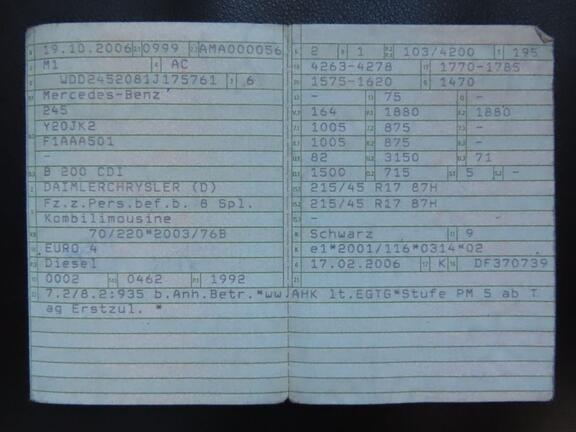 19.10.2006 0999 AMA000056
M1 AC
WDD2452081J175761 6
Mercedes-Benz
245
Y20JK2
F1AAA501
-
B 200 CDI
DAIMLERCHRYSLER (D)
Fz.z.Pers.bef.b. 8 Spl.
Kombilimousine
70/220*2003/76B
EURO 4
Diesel
0002 0462 1992
7.2/8.2:935 b.Anh.Betr.*ww.AHK lt.EGTG*Stufe PM 5 ab T
ag Erstzul. *
2 1 103/4200 195
4263-4278 1770-1785
1575-1620 1470
- 75 -
164 1880 1880
1005 875 -
1005 875 -
82 3150 71
1500 715 5 -
215/45 R17 87H
215/45 R17 87H
-
Schwarz 9
e1*2001/116*0314*02
17.02.2006 K DF370739